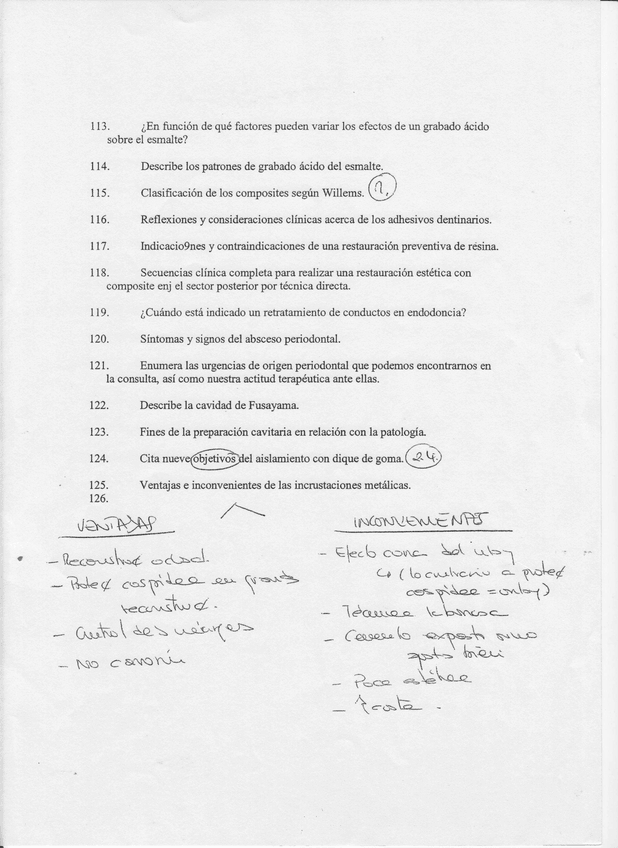 113. ¿En función de qué factores pueden variar los efectos de un grabado ácido
sobre el esmalte?
114. Describe los patrones de grabado ácido del esmalte.
115. Clasificación de los composites según Willems. ?
116. Reflexiones y consideraciones clínicas acerca de los adhesivos dentinarios.
117. Indicacio9nes y contraindicaciones de una restauración preventiva de resina.
118. Secuencias clínica completa para realizar una restauración estética con
composite enj el sector posterior por técnica directa.
119. ¿Cuándo está indicado un retratamiento de conductos en endodoncia?
120. Síntomas y signos del absceso periodontal.
121. Enumera las urgencias de origen periodontal que podemos encontrarnos en
la consulta, así como nuestra actitud terapéutica ante ellas.
122. Describe la cavidad de Fusayama.
123. Fines de la preparación cavitaria en relación con la patología.
124. Cita nueve objetivos del aislamiento con dique de goma. 24.
125. Ventajas e inconvenientes de las incrustaciones metálicas.
126.
VENTAJAS
INCONVENIENTES
- Reconstrucc oclusal.
- Protecc cúspides en grandes
reconstrucc.
- Control
- No
- Efecto cuña del inlay
↳ (lo contrario a protecc
cúspides = onlay)
- Técnica laboriosa
- Cemento expuesto
- Poca estética
- ↑ coste.